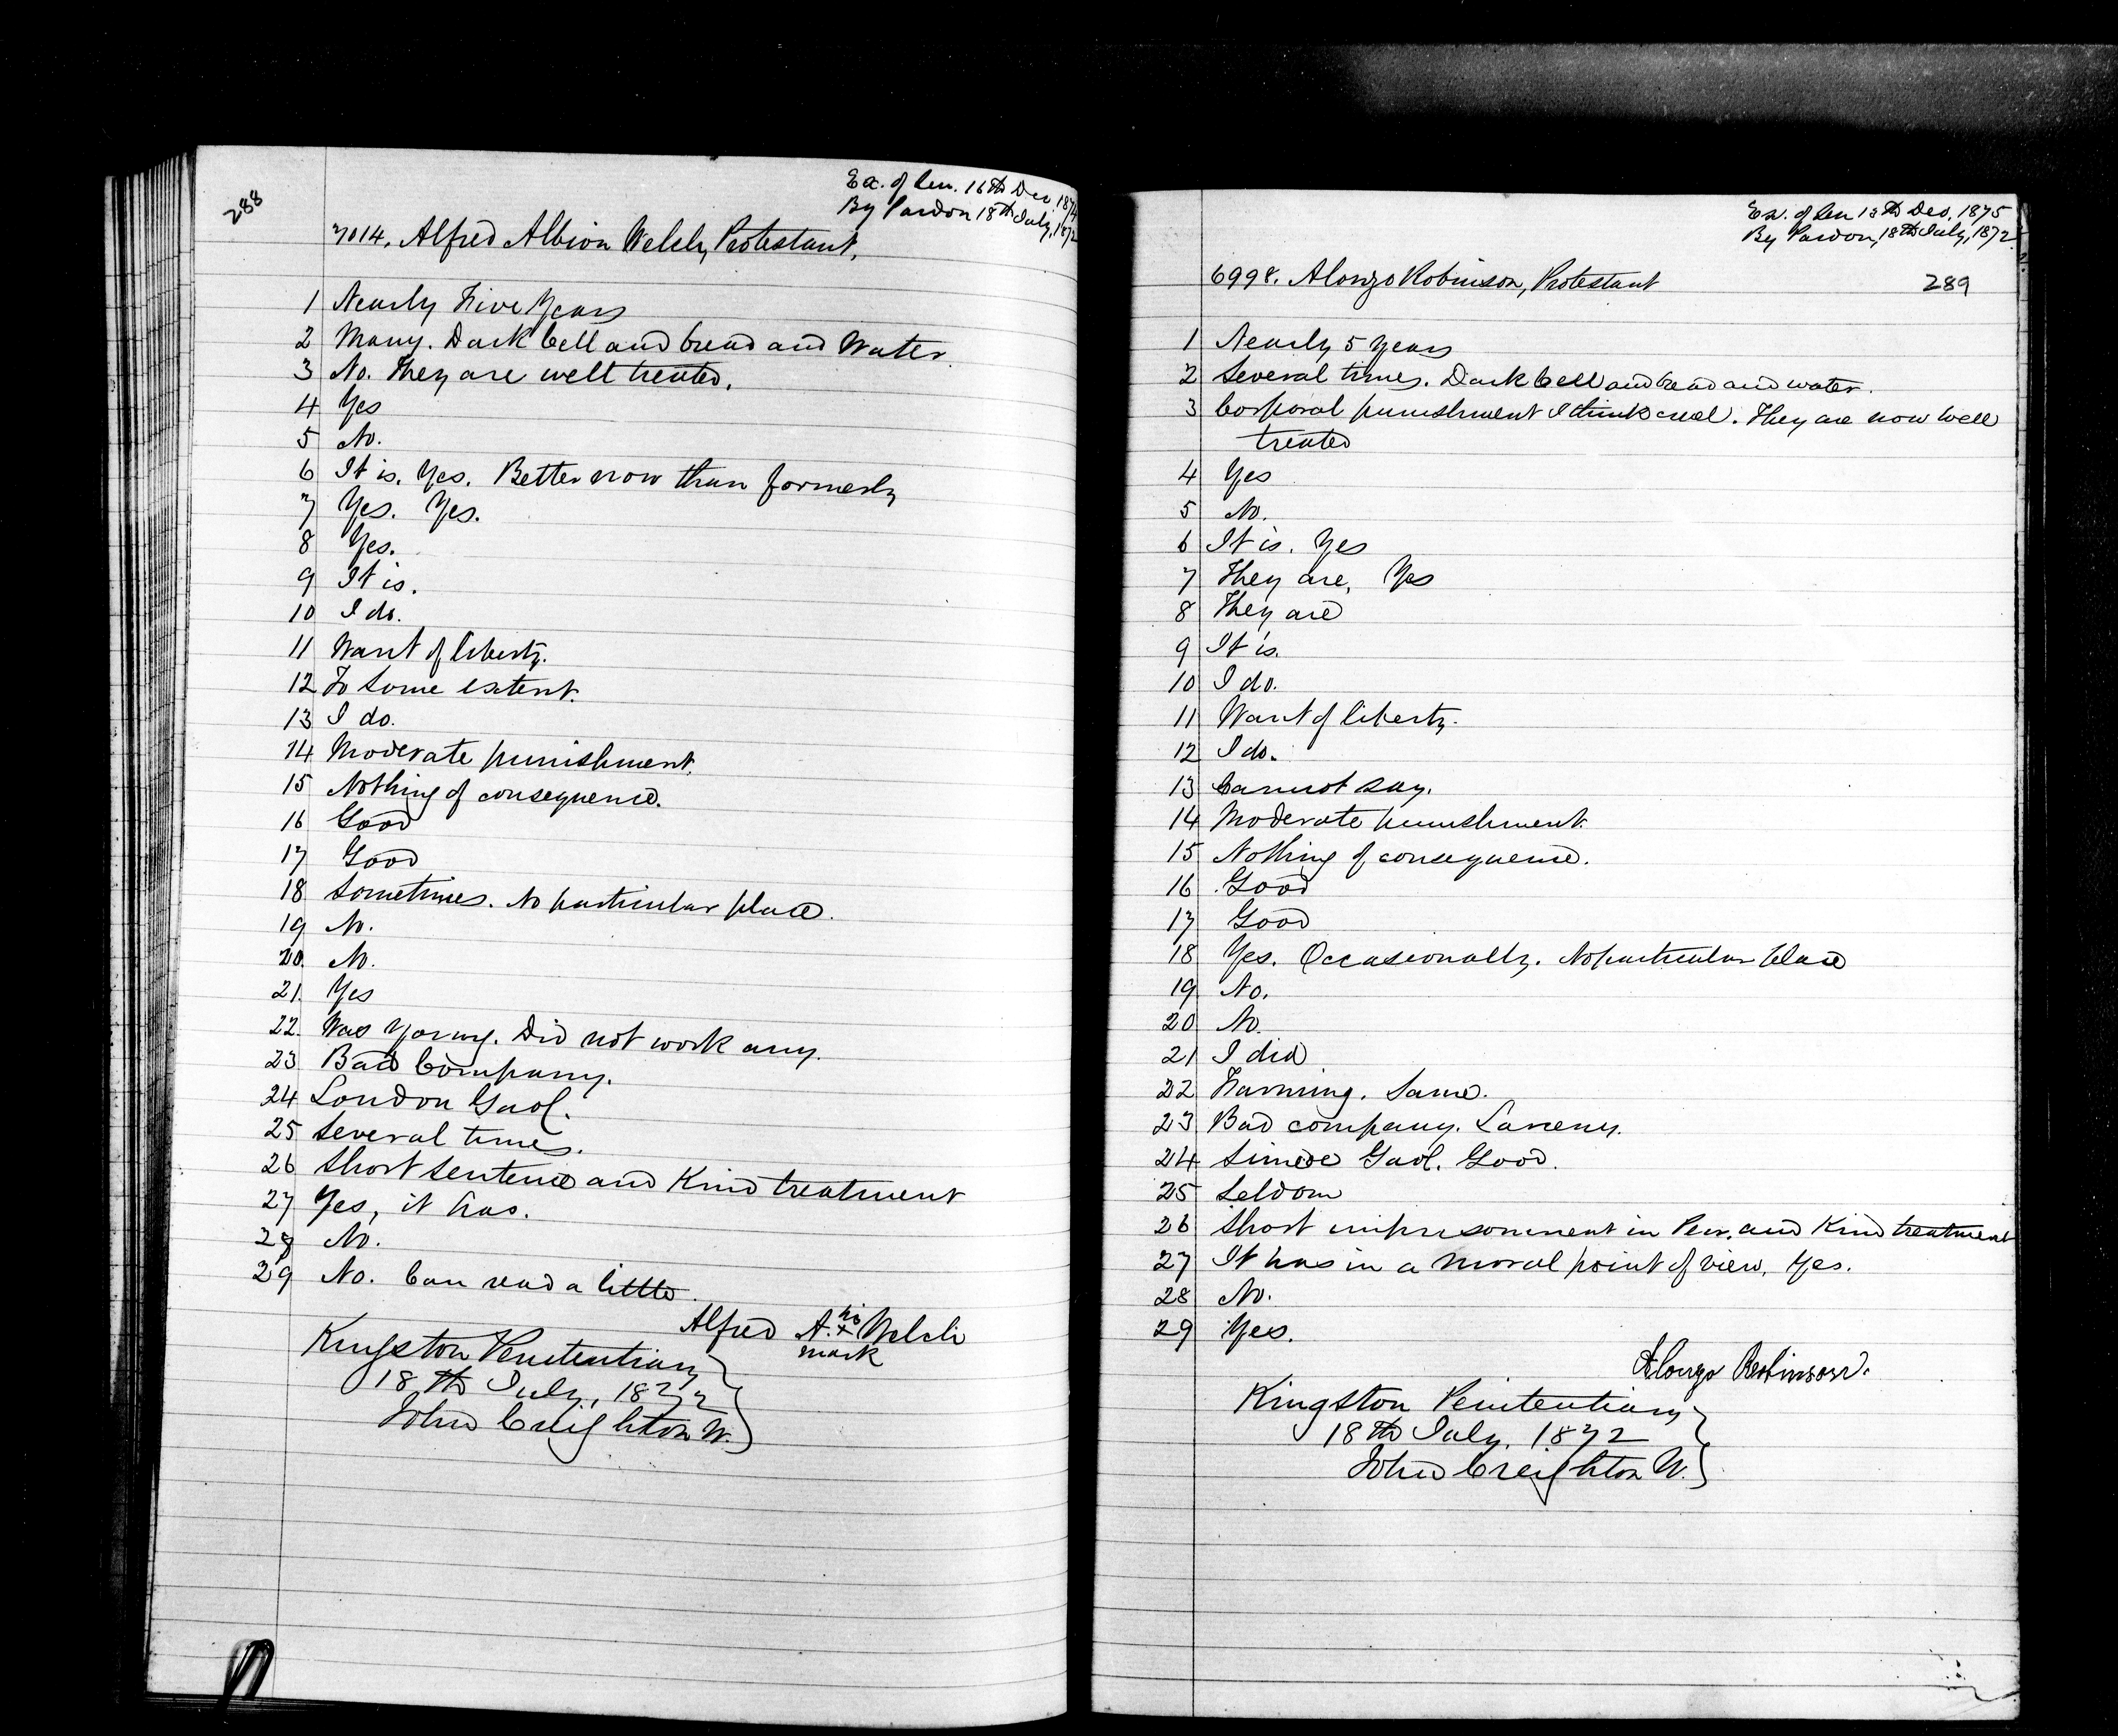 288
Ex. of Sen. 16th Dec, 1874
By Pardon 18th July, 1872
7014. Alfred Albion Welch, Protestant.
1 Nearly Five Years
2 Many. Dark Cell and bread and Water
3 No. They are well treated.
4 Yes
5 No.
6 It is. Yes. Better now than formerly
7 Yes. Yes.
8 Yes.
9 It is.
10 I do.
11 Want of liberty.
12 To some extent.
13 I do.
14 Moderate punishment.
15 Nothing of consequence.
16 Good
17 Good
18 Sometimes. No particular place.
19 No.
20. No.
21. Yes
22. Was Young. Did not work any.
23 Bad Company.
24 London Gaol.
25 Several times.
26 Short sentence and Kind treatment
27 Yes, it has.
28 No.
29 No. Can read a little.
Alfred A. his x mark Welch
Kingston Penitentiary
18th July, 1872
John Creighton W.
Ex. of Sen 13th Dec, 1875
By Pardon, 18th July, 1872
6998. Alonzo Robinson, Protestant 289
1 Nearly 5 years
2 Several times. Dark Cell and bread and water.
3 Corporal punishment I think cruel. They are now well
treated
4 Yes
5 No.
6 It is. Yes
7 They are, Yes
8 They are
9 It is.
10 I do.
11 Want of liberty.
12 I do.
13 Cannot say.
14 Moderate punishment.
15 Nothing of consequence.
16 Good
17 Good
18 Yes. Occasionally. No particular place
19 No.
20 No.
21 I did
22 Farming. Same.
23 Bad company. Larceny.
24 Simcoe Gaol. Good.
25 Seldom
26 Short imprisonment in Pen. and Kind treatment
27 It has in a moral point of view. Yes.
28 No.
29 Yes.
Alonzo Robinson.
Kingston Penitentiary
18th July, 1872
John Creighton W.